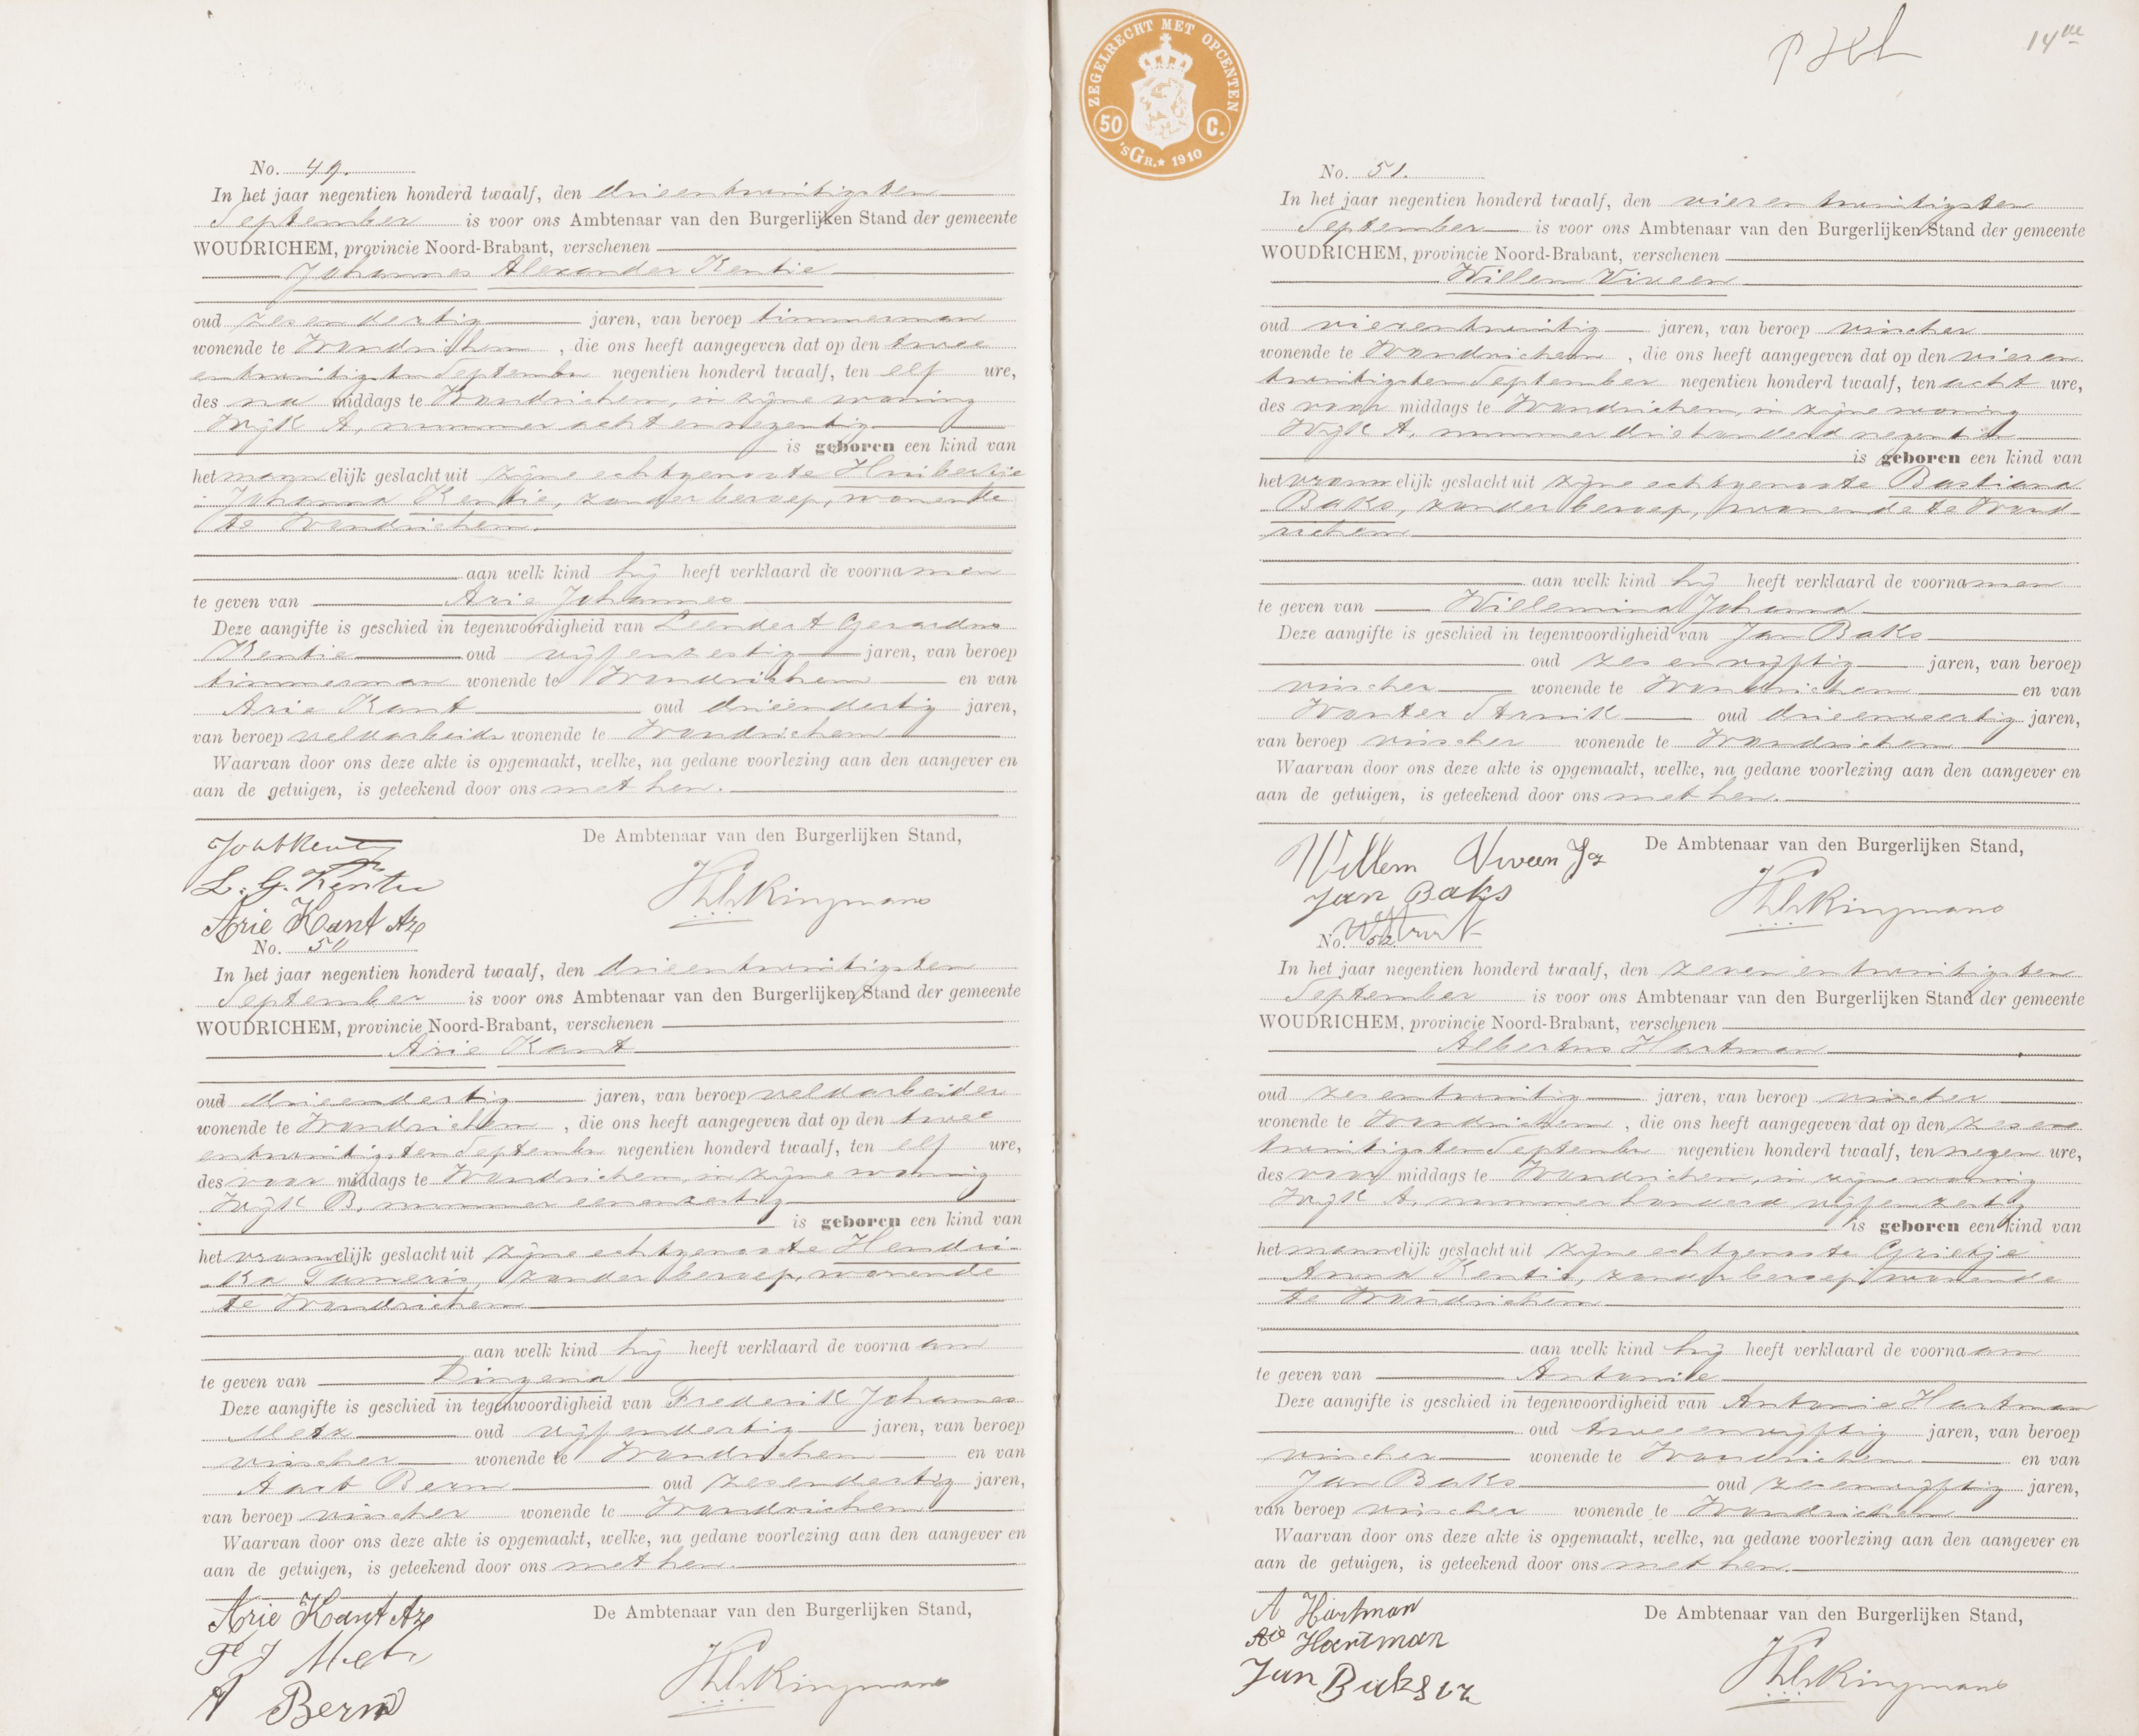 No. 49.
In het jaar negentien honderd twaalf, den drieentwintigsten
September is voor ons Ambtenaar van den Burgerlijken Stand der gemeente
WOUDRICHEM, provincie Noord-Brabant, verschenen
Johannes Alexander Kentie
oud zesendertig jaren, van beroep timmerman
wonende te Woudrichem, die ons heeft aangegeven dat op den twee
entwintigsten September negentien honderd twaalf, ten elf ure,
des na middags te Woudrichem, in zijne woning
Wijk A, nummer acht en negentig
is geboren een kind van
het mannelijk geslacht uit zijne echtgenoote Huibertje
Johanna Kentie, zonder beroep, wonende
te Woudrichem.
aan welk kind hij heeft verklaard de voornamen
te geven van Arie Johannes
Deze aangifte is geschied in tegenwoordigheid van Leendert Gerardus
Kentie oud vijfenzestig jaren, van beroep
timmerman wonende te Woudrichem en van
Arie Kant oud drieendertig jaren,
van beroep veldarbeider wonende te Woudrichem
Waarvan door ons deze akte is opgemaakt, welke, na gedane voorlezing aan den aangever en
aan de getuigen, is geteekend door ons met hen.
De Ambtenaar van den Burgerlijken Stand,
L. G. Kentie
Arie Kant Az
No. 50
In het jaar negentien honderd twaalf, den drieentwintigsten
September is voor ons Ambtenaar van den Burgerlijken Stand der gemeente
WOUDRICHEM, provincie Noord-Brabant, verschenen
Arie Kant
oud drieendertig jaren, van beroep veldarbeider
wonende te Woudrichem, die ons heeft aangegeven dat op den twee
entwintigsten September negentien honderd twaalf, ten elf ure,
des voor middags te Woudrichem, in zijne woning
Wijk B, nummer eenenzestig
is geboren een kind van
het vrouwelijk geslacht uit zijne echtgenoote Hendri-
ka Tameris, zonder beroep, wonende
te Woudrichem
aan welk kind hij heeft verklaard de voornaam
te geven van Dingena
Deze aangifte is geschied in tegenwoordigheid van Frederik Johannes
Metz oud vijfendertig jaren, van beroep
visscher wonende te Woudrichem en van
Aart Bern oud zesendertig jaren,
van beroep visscher wonende te Woudrichem
Waarvan door ons deze akte is opgemaakt, welke, na gedane voorlezing aan den aangever en
aan de getuigen, is geteekend door ons met hen.
De Ambtenaar van den Burgerlijken Stand,
Arie Kant Az
F J Metz
A Bern
ZEGELRECHT MET OPCENTEN
50 C.
'sGr. 1910
14de
No. 51.
In het jaar negentien honderd twaalf, den vierentwintigsten
September is voor ons Ambtenaar van den Burgerlijken Stand der gemeente
WOUDRICHEM, provincie Noord-Brabant, verschenen
Willem Viveen
oud vierentwintig jaren, van beroep visscher
wonende te Woudrichem, die ons heeft aangegeven dat op den vieren
twintigsten September negentien honderd twaalf, ten acht ure,
des voor middags te Woudrichem, in zijne woning
Wijk A, nummer driehonderd negentien
is geboren een kind van
het vrouwelijk geslacht uit zijne echtgenoote Bastiana
Baks, zonder beroep, wonende te Woud-
richem
aan welk kind hij heeft verklaard de voornamen
te geven van Willemina Johanna
Deze aangifte is geschied in tegenwoordigheid van Jan Baks
oud zesenvijftig jaren, van beroep
visscher wonende te Woudrichem en van
Wouter Struik oud drieenveertig jaren,
van beroep visscher wonende te Woudrichem
Waarvan door ons deze akte is opgemaakt, welke, na gedane voorlezing aan den aangever en
aan de getuigen, is geteekend door ons met hen.
De Ambtenaar van den Burgerlijken Stand,
Willem Viveen Jz
Jan Baks
No. 52.
In het jaar negentien honderd twaalf, den zevenentwintigsten
September is voor ons Ambtenaar van den Burgerlijken Stand der gemeente
WOUDRICHEM, provincie Noord-Brabant, verschenen
Albertus Hartman
oud zesentwintig jaren, van beroep visscher
wonende te Woudrichem, die ons heeft aangegeven dat op den zesen
twintigsten September negentien honderd twaalf, ten negen ure,
des voor middags te Woudrichem, in zijne woning
Wijk A, nummer honderd vijfenzestig
is geboren een kind van
het mannelijk geslacht uit zijne echtgenoote Grietje
Anna Kentie, zonder beroep, wonende
te Woudrichem
aan welk kind hij heeft verklaard de voornaam
te geven van Antonie
Deze aangifte is geschied in tegenwoordigheid van Antonie Hartman
oud tweeenvijftig jaren, van beroep
visscher wonende te Woudrichem en van
Jan Baks oud zesenvijftig jaren,
van beroep visscher wonende te Woudrichem
Waarvan door ons deze akte is opgemaakt, welke, na gedane voorlezing aan den aangever en
aan de getuigen, is geteekend door ons met hen.
De Ambtenaar van den Burgerlijken Stand,
A Hartman
Hartman
Jan Baks